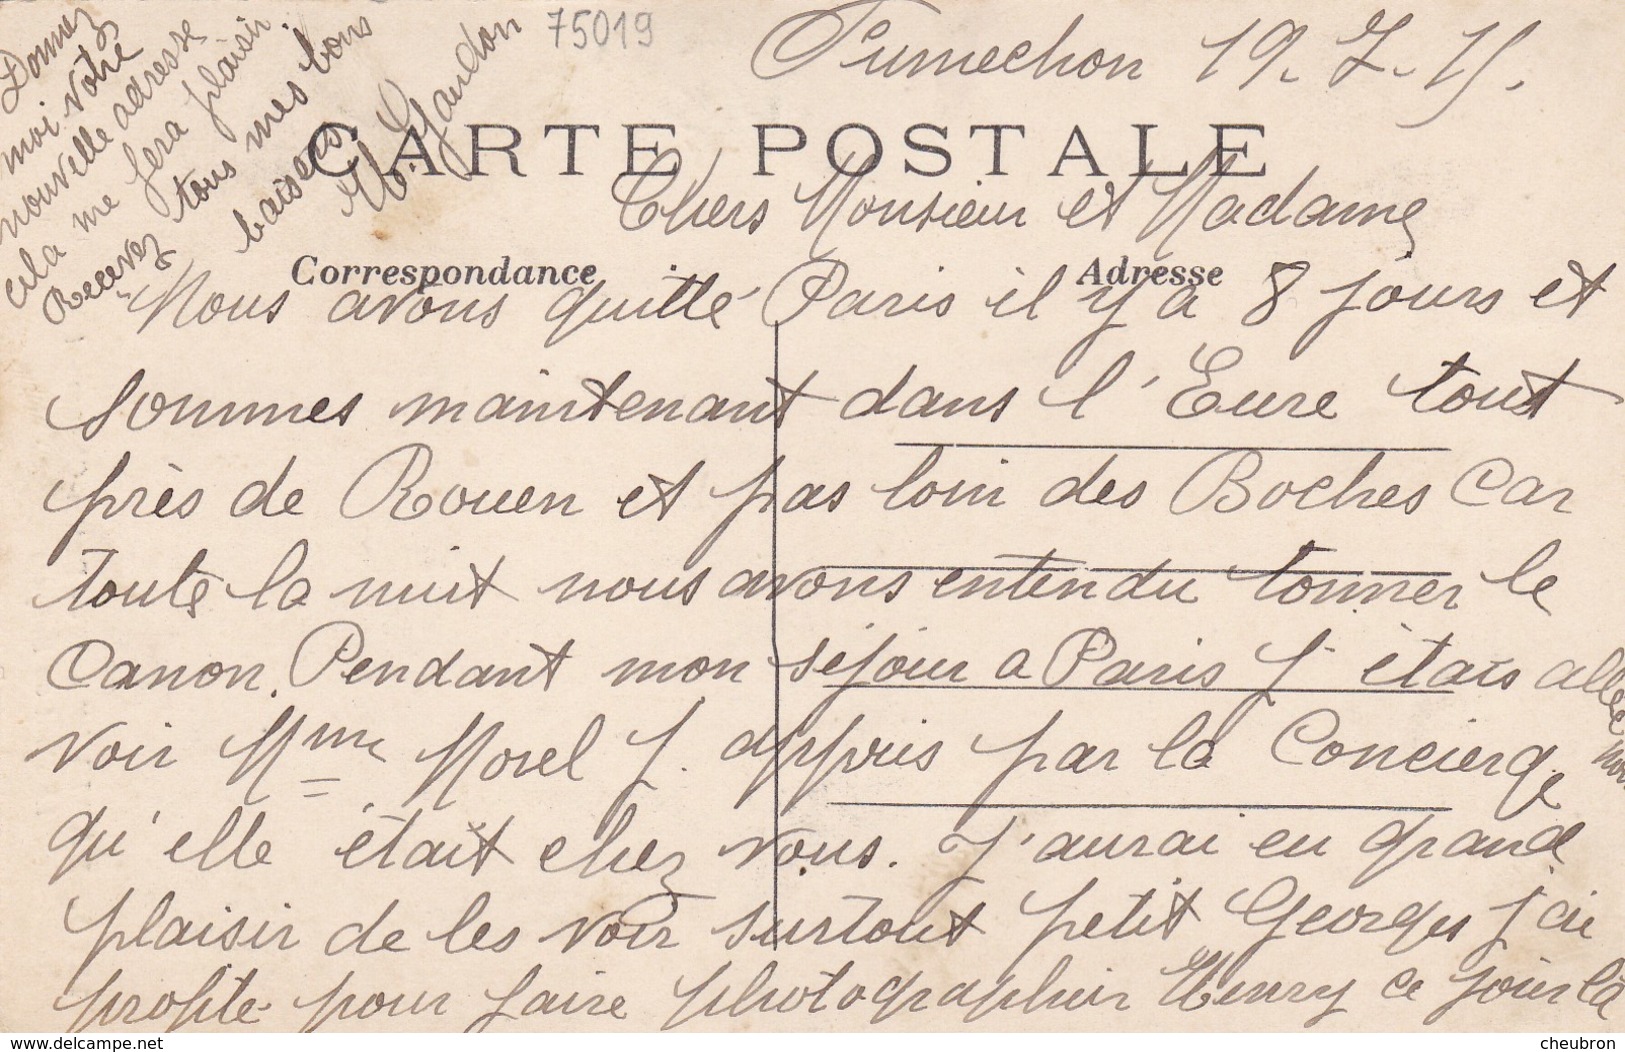 75019
Pumechon 19. 7. 15.
CARTE POSTALE
Chers Monsieur et Madame,
Correspondance Adresse
Nous avons quitté Paris il y a 8 jours et
sommes maintenant dans l'Eure tout
près de Rouen et pas loin des Boches Car
toute la nuit nous avons entendu tonner le
Canon. Pendant mon séjour a Paris j'étais allée
voir Mme Morel j. appris par la Concierge
qu'elle était chez vous. J'aurai eu grand
plaisir de les voir surtout petit Georges j'ai
profité pour faire photographier Henry ce jour là
Donnez
moi votre
nouvelle adresse
cela me fera plaisir.
Recevez tous mes bons
baisers
M. Gaudon
delcampe.net
cheubron